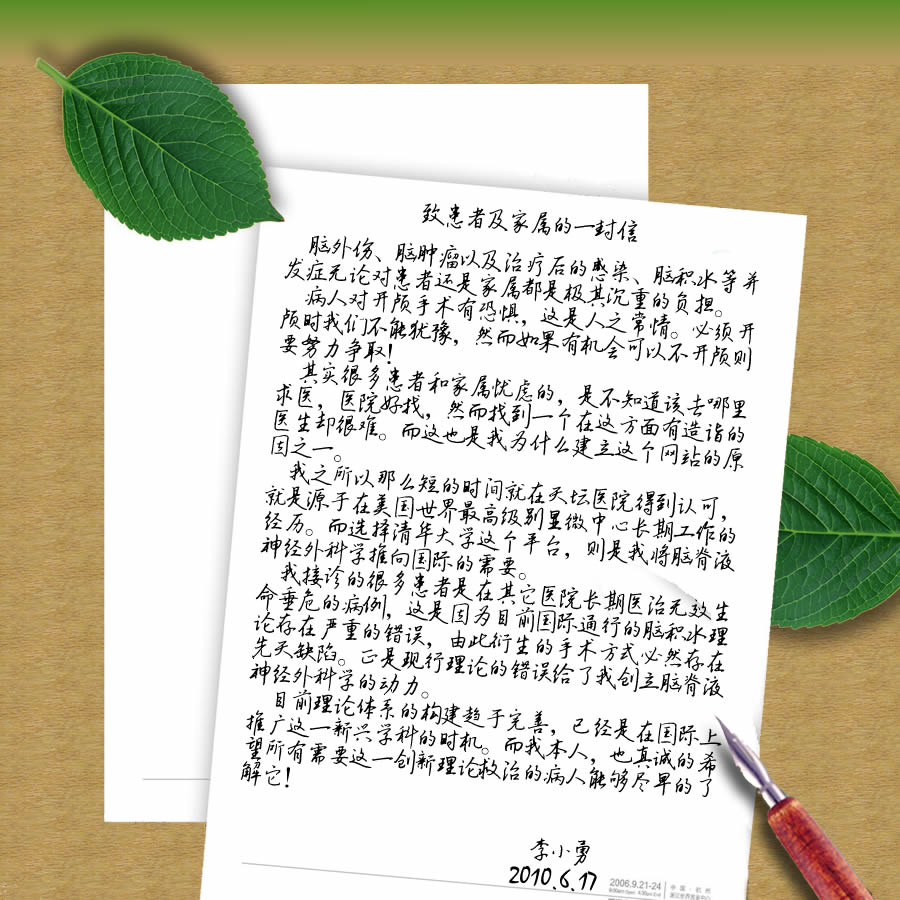 致患者及家属的一封信
脑外伤、脑肿瘤以及治疗后的感染、脑积水等并
发症无论对患者还是家属都是极其沉重的负担。
病人对开颅手术有恐惧，这是人之常情。必须开
颅时我们不能犹豫，然而如果有机会可以不开颅则
要努力争取！
其实很多患者和家属忧虑的，是不知道该去哪里
求医，医院好找，然而找到一个在这方面有造诣的
医生却很难。而这也是我为什么建立这个网站的原
因之一。
我之所以那么短的时间就在天坛医院得到认可，
就是源于在美国世界最高级别显微中心长期工作的
经历。而选择清华大学这个平台，则是我将脑脊液
神经外科学推向国际的需要。
我接诊的很多患者是在其它医院长期医治无效生
命垂危的病例，这是因为目前国际通行的脑积水理
论存在严重的错误，由此衍生的手术方式必然存在
先天缺陷。正是现行理论的错误给了我创立脑脊液
神经外科学的动力。
目前理论体系的构建趋于完善，已经是在国际上
推广这一新兴学科的时机。而我本人，也真诚的希
望所有需要这一创新理论救治的病人能够尽早的了
解它！
李小勇
2010.6.17
2006.9.21-24
中国·杭州